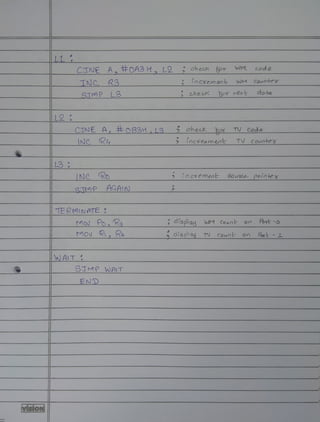 L1 :
CJNE A, #0A3H, L2 ; check for WM code
INC R3 ; increment WM counter
SJMP L3 ; check for next data
L2 :
CJNE A, #0B3H, L3 ; check for TV code
INC R4 ; increment TV counter
L3 :
INC R0 ; increment source pointer
SJMP AGAIN ;
TERMINATE :
MOV P0, R3 ; display WM count on Port-0
MOV P1, R4 ; display TV count on Port-1
WAIT :
SJMP WAIT
END
vision